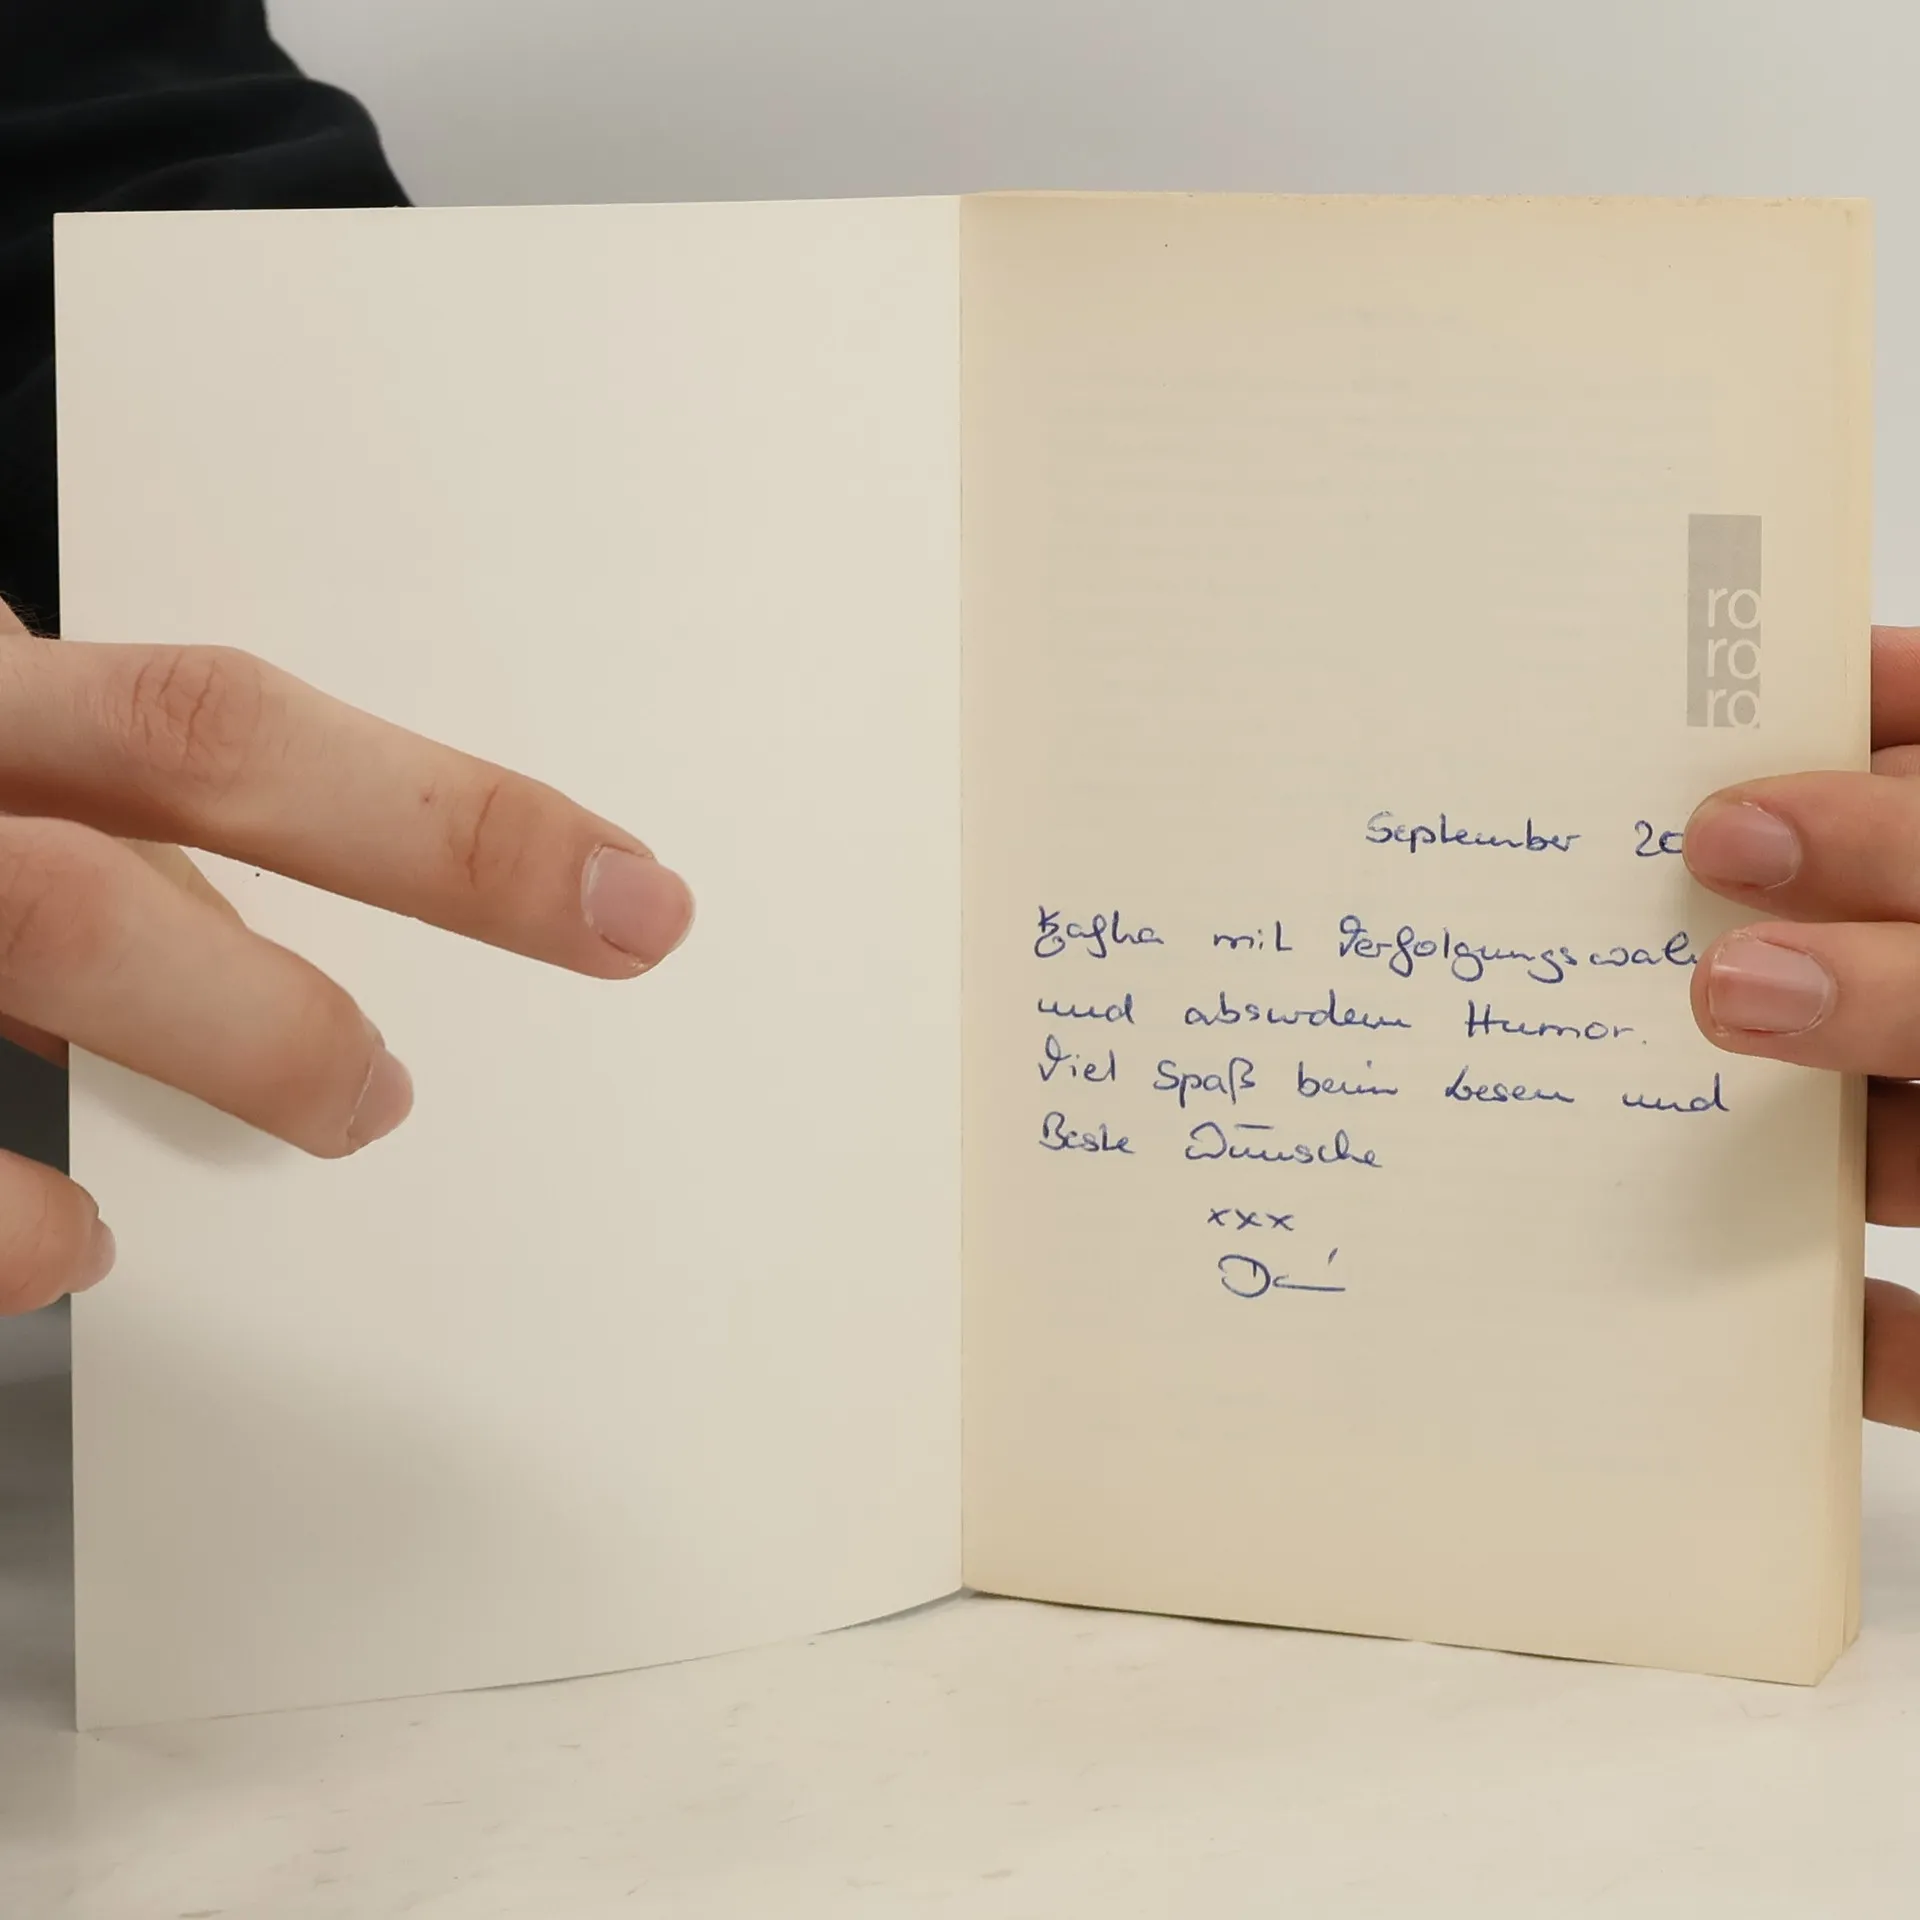 ro
ro
ro
September 20
Kafka mit Verfolgungswah
und absurdem Humor.
Viel Spaß beim Lesen und
Beste Wünsche
xxx